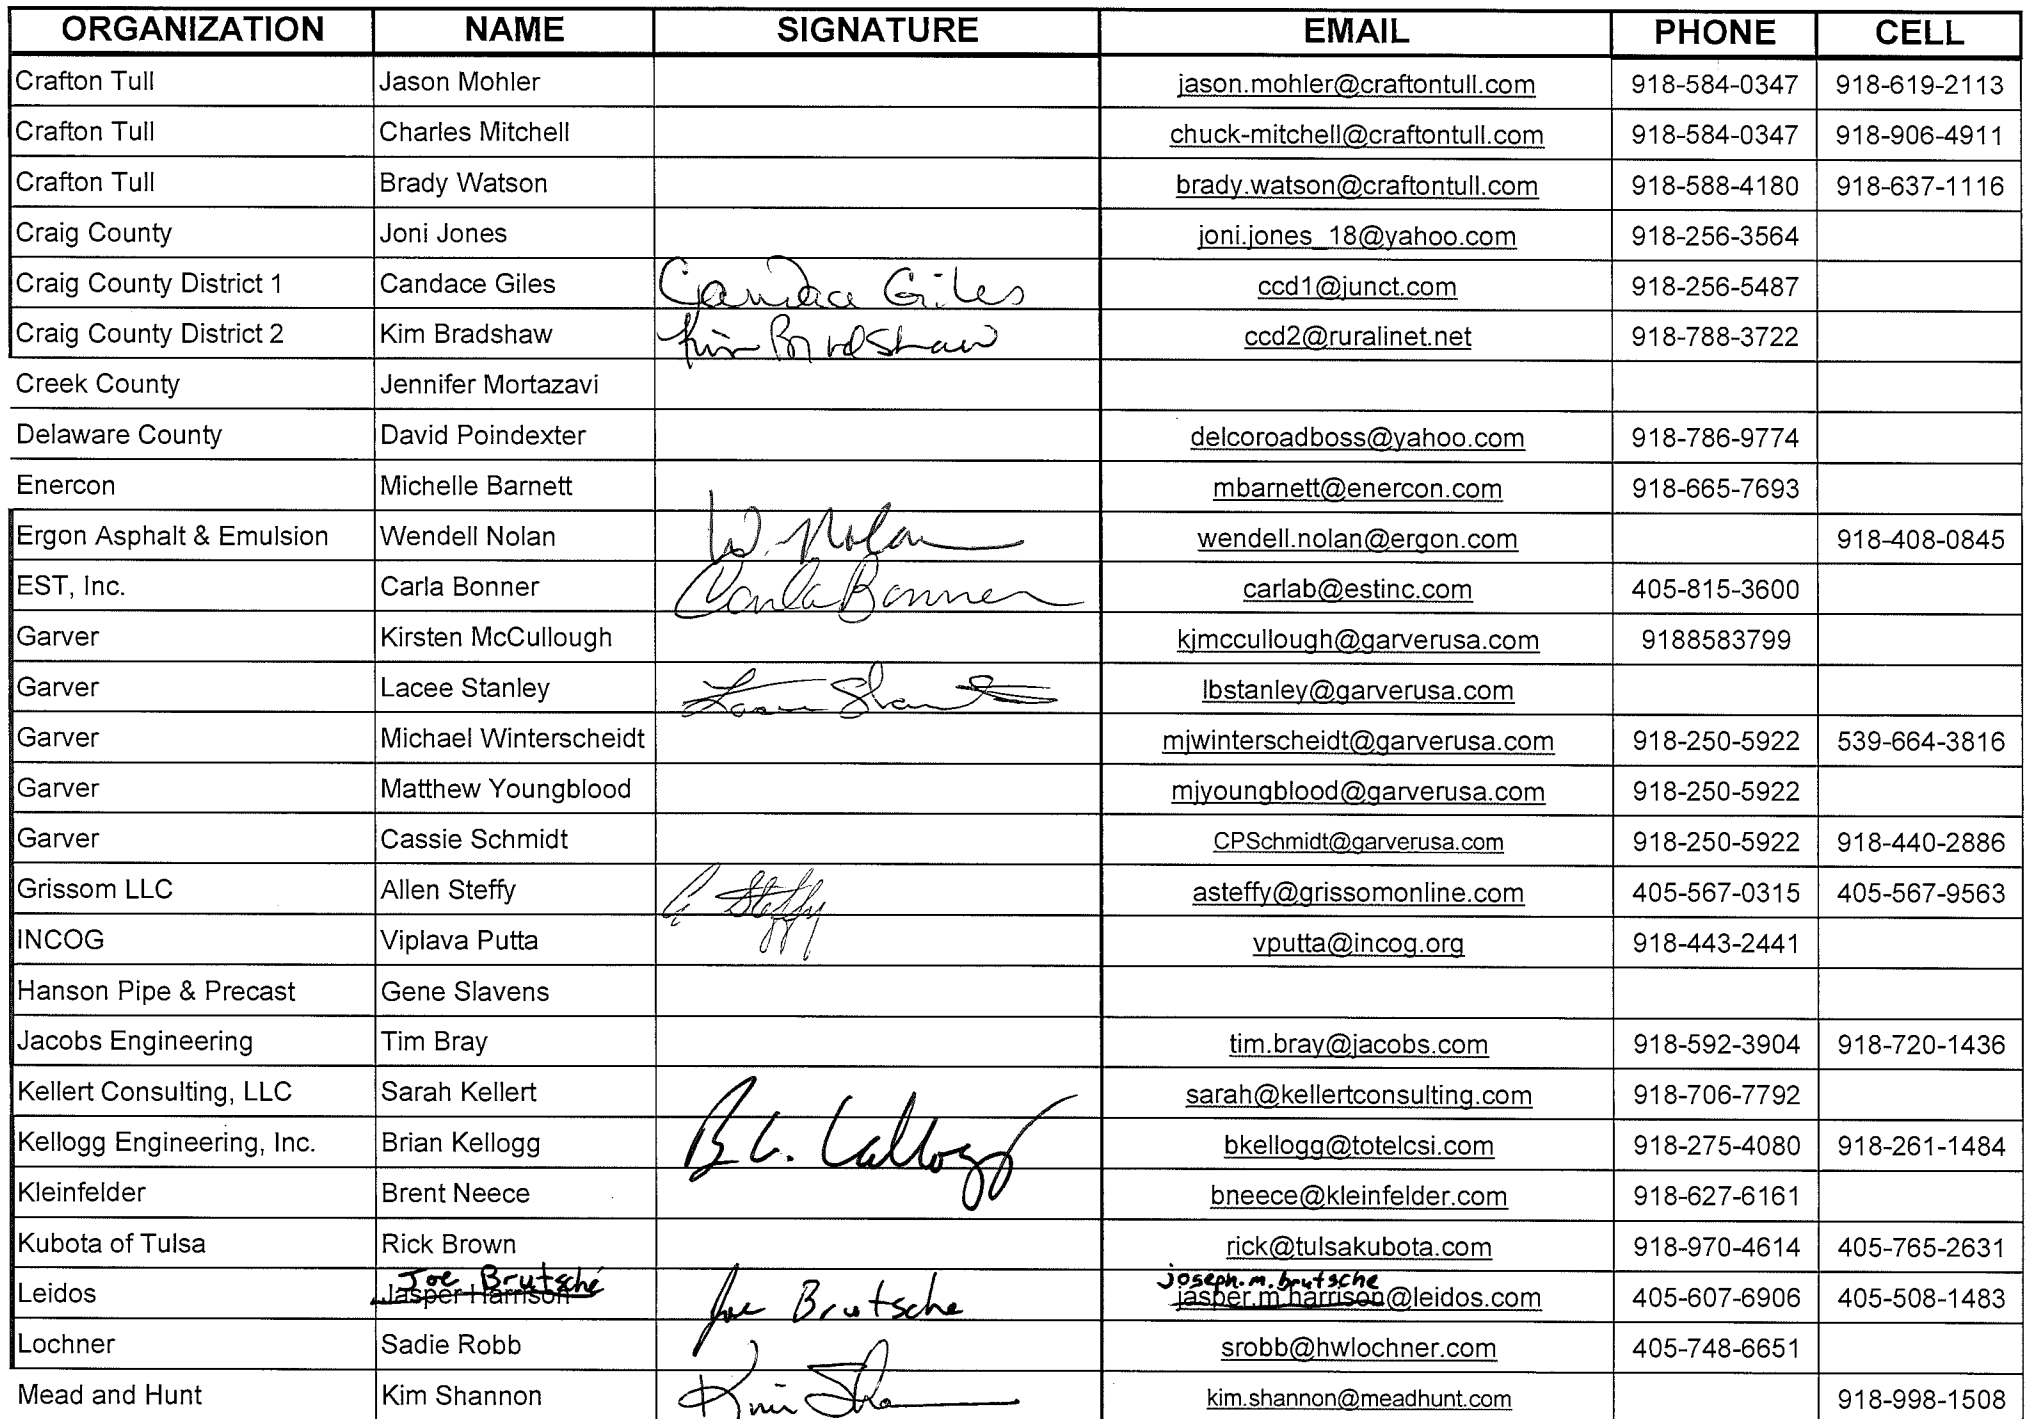 ORGANIZATION NAME SIGNATURE EMAIL PHONE CELL
Crafton Tull Jason Mohler jason.mohler@craftontull.com 918-584-0347 918-619-2113
Crafton Tull Charles Mitchell chuck-mitchell@craftontull.com 918-584-0347 918-906-4911
Crafton Tull Brady Watson brady.watson@craftontull.com 918-588-4180 918-637-1116
Craig County Joni Jones joni.jones_18@yahoo.com 918-256-3564
Craig County District 1 Candace Giles Candace Giles ccd1@junct.com 918-256-5487
Craig County District 2 Kim Bradshaw Kim Bradshaw ccd2@ruralinet.net 918-788-3722
Creek County Jennifer Mortazavi
Delaware County David Poindexter delcoroadboss@yahoo.com 918-786-9774
Enercon Michelle Barnett mbarnett@enercon.com 918-665-7693
Ergon Asphalt & Emulsion Wendell Nolan W. Nolan wendell.nolan@ergon.com 918-408-0845
EST, Inc. Carla Bonner Carla Bonner carlab@estinc.com 405-815-3600
Garver Kirsten McCullough kjmccullough@garverusa.com 9188583799
Garver Lacee Stanley Lacee Stanley lbstanley@garverusa.com
Garver Michael Winterscheidt mjwinterscheidt@garverusa.com 918-250-5922 539-664-3816
Garver Matthew Youngblood mjyoungblood@garverusa.com 918-250-5922
Garver Cassie Schmidt CPSchmidt@garverusa.com 918-250-5922 918-440-2886
Grissom LLC Allen Steffy A Steffy asteffy@grissomonline.com 405-567-0315 405-567-9563
INCOG Viplava Putta vputta@incog.org 918-443-2441
Hanson Pipe & Precast Gene Slavens
Jacobs Engineering Tim Bray tim.bray@jacobs.com 918-592-3904 918-720-1436
Kellert Consulting, LLC Sarah Kellert sarah@kellertconsulting.com 918-706-7792
Kellogg Engineering, Inc. Brian Kellogg B.C. Kellogg bkellogg@totelcsi.com 918-275-4080 918-261-1484
Kleinfelder Brent Neece bneece@kleinfelder.com 918-627-6161
Kubota of Tulsa Rick Brown rick@tulsakubota.com 918-970-4614 405-765-2631
Joe Brutsché joseph.m.brutsche
Leidos Jasper Harrison Joe Brutsche jasper.m.harrison@leidos.com 405-607-6906 405-508-1483
Lochner Sadie Robb srobb@hwlochner.com 405-748-6651
Mead and Hunt Kim Shannon Kim Shannon kim.shannon@meadhunt.com 918-998-1508